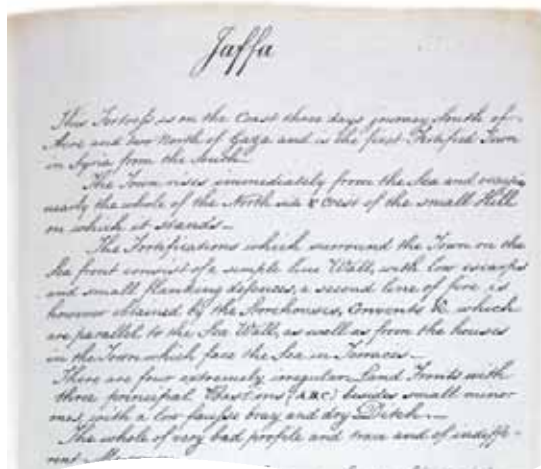 Jaffa
This Fortress is on the Coast three days journey South of
Acre and two North of Gaza and is the first Fortified Town
in Syria from the South.
The Town rises immediately from the Sea and occupies
nearly the whole of the North side & Crest of the small Hill
on which it stands_
The Fortifications which surround the Town on the
Sea front consist of a simple line Wall, with low escarps
and small flanking defences, a second line of fire is
however obtained by the Storehouses, Convents &c. which
are parallel to the Sea Wall, as well as from the houses
in the Town which face the Sea in Terraces_
There are four extremely irregular Land Fronts with
three principal Bastions (ABC) besides small minor
ones, with a low fausse bray and dry Ditch._
The whole of very bad profile and trace and of indiffe-
rent